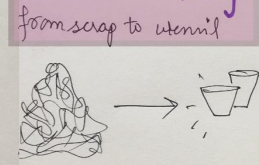 from scrap to utensil